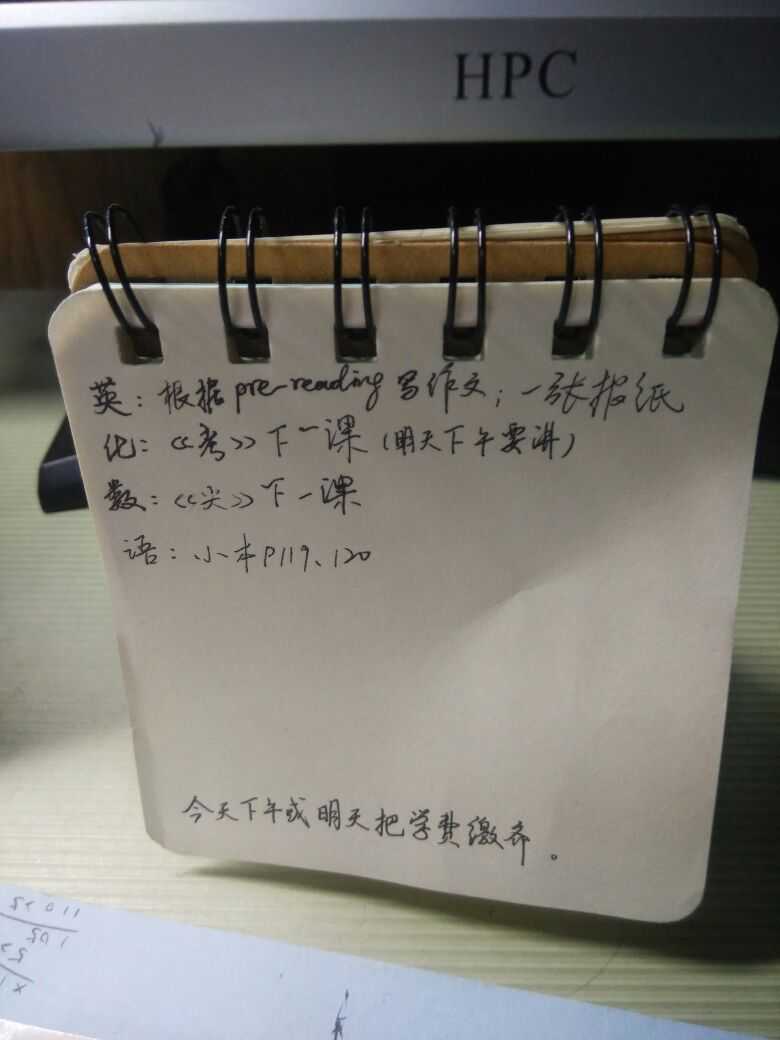 HPC
英：根据pre-reading写作文；一张报纸
化：《考》下一课（明天下午要讲）
数：《尖》下一课
语：小本P119、120
今天下午或明天把学费缴齐。